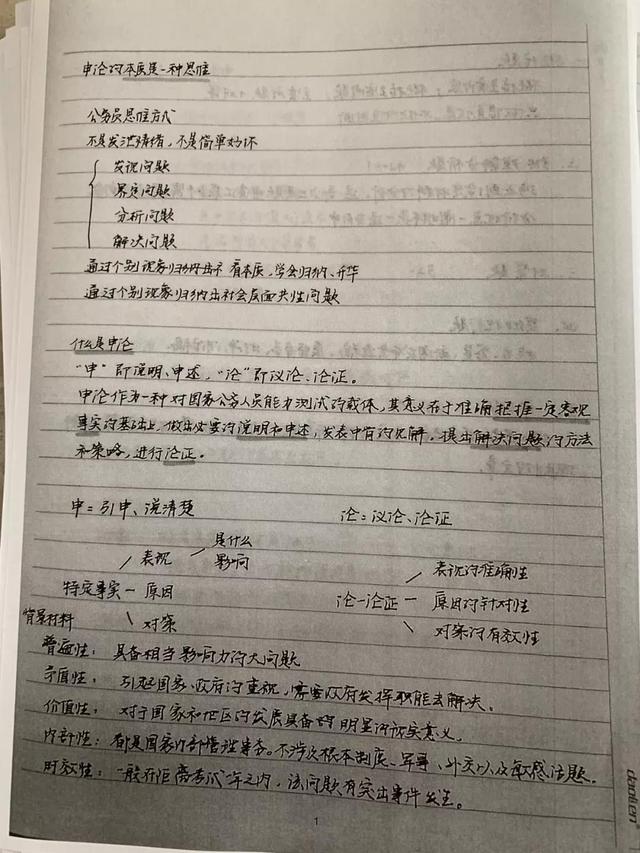 申论的本质是一种思维
公务员思维方式
不是发泄情绪，不是简单好坏
发现问题
界定问题
分析问题
解决问题
通过个别现象归纳出 看本质，学会归纳、升华
通过个别现象归纳出社会层面共性问题
什么是申论
“申”即说明、申述，“论”即议论、论证。
申论作为一种对国家公务人员能力测试的载体，其意义在于准确把握一定客观
事实的基础上，做出必要的说明和申述，发表中肯的见解，提出解决问题的方法
和策略，进行论证。
申＝引申、说清楚 论＝议论、论证
表现 是什么
影响
表现的准确性
特定事实 原因 论－论证 原因的针对性
对策 对策的有效性
背景材料
普遍性：具备相当影响力的大问题
矛盾性：引起国家、政府的重视，需要政府发挥职能去解决。
价值性：对于国家和地区的发展具备的明显的现实意义。
内部性：都是国家内部管理事务。不涉及根本制度、军事、外交以及敏感话题。
时效性：一般在距离考试一年之内，该问题有突出事件发生。
1